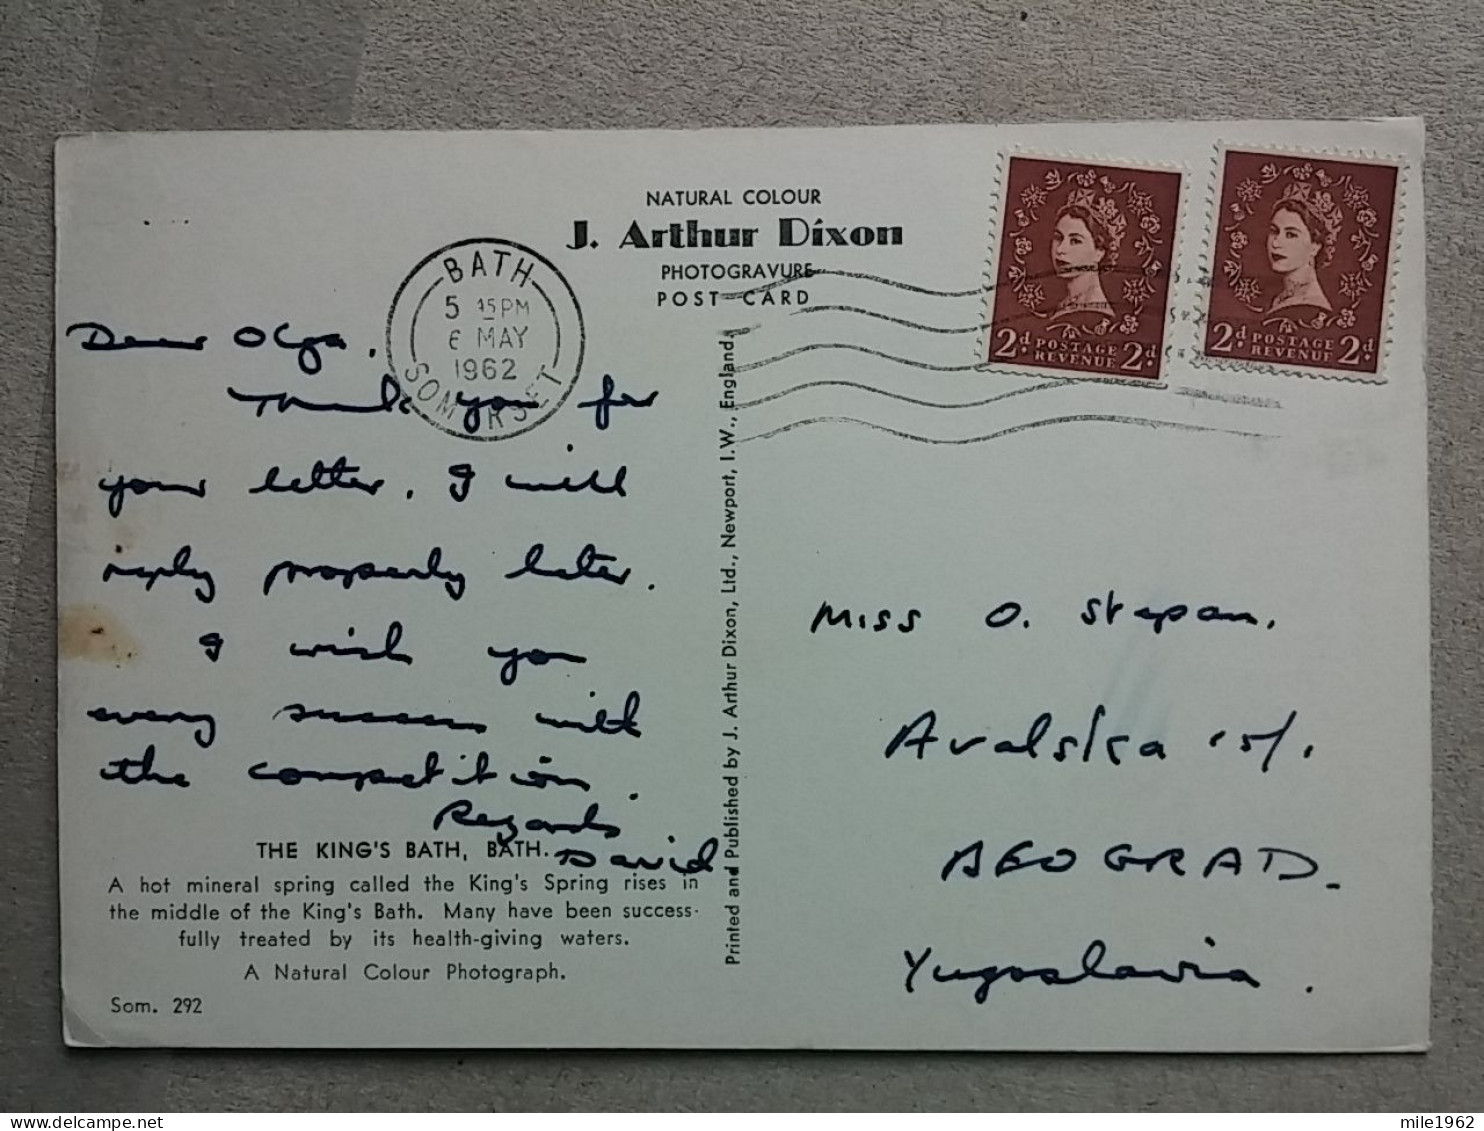 NATURAL COLOUR
J. Arthur Dixon
PHOTOGRAVURE
POST CARD
BATH
5 15PM
6 MAY
1962
SOMERSET
2d. POSTAGE REVENUE 2d.
2d. POSTAGE REVENUE 2d.
Dear Olga.
Thank you for
your letter. I will
reply properly later.
I wish you
every success with
the competition.
Regards
David
THE KING'S BATH, BATH.
A hot mineral spring called the King's Spring rises in
the middle of the King's Bath. Many have been success-
fully treated by its health-giving waters.
A Natural Colour Photograph.
Som. 292
Printed and Published by J. Arthur Dixon, Ltd., Newport, I.W., England.
Miss O. Stepan.
Avalska
BEOGRAD.
Yugoslavia.
mile1962